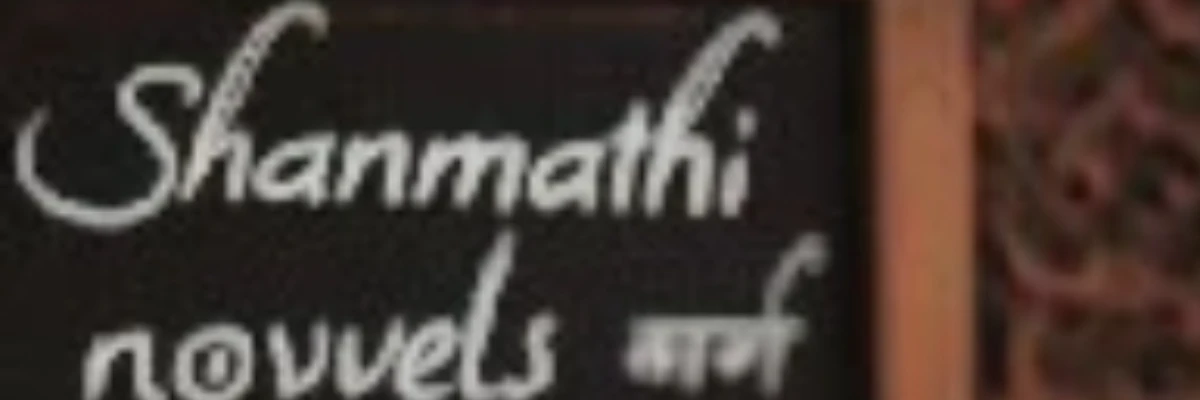 Shanmathi
novvels मार्ग